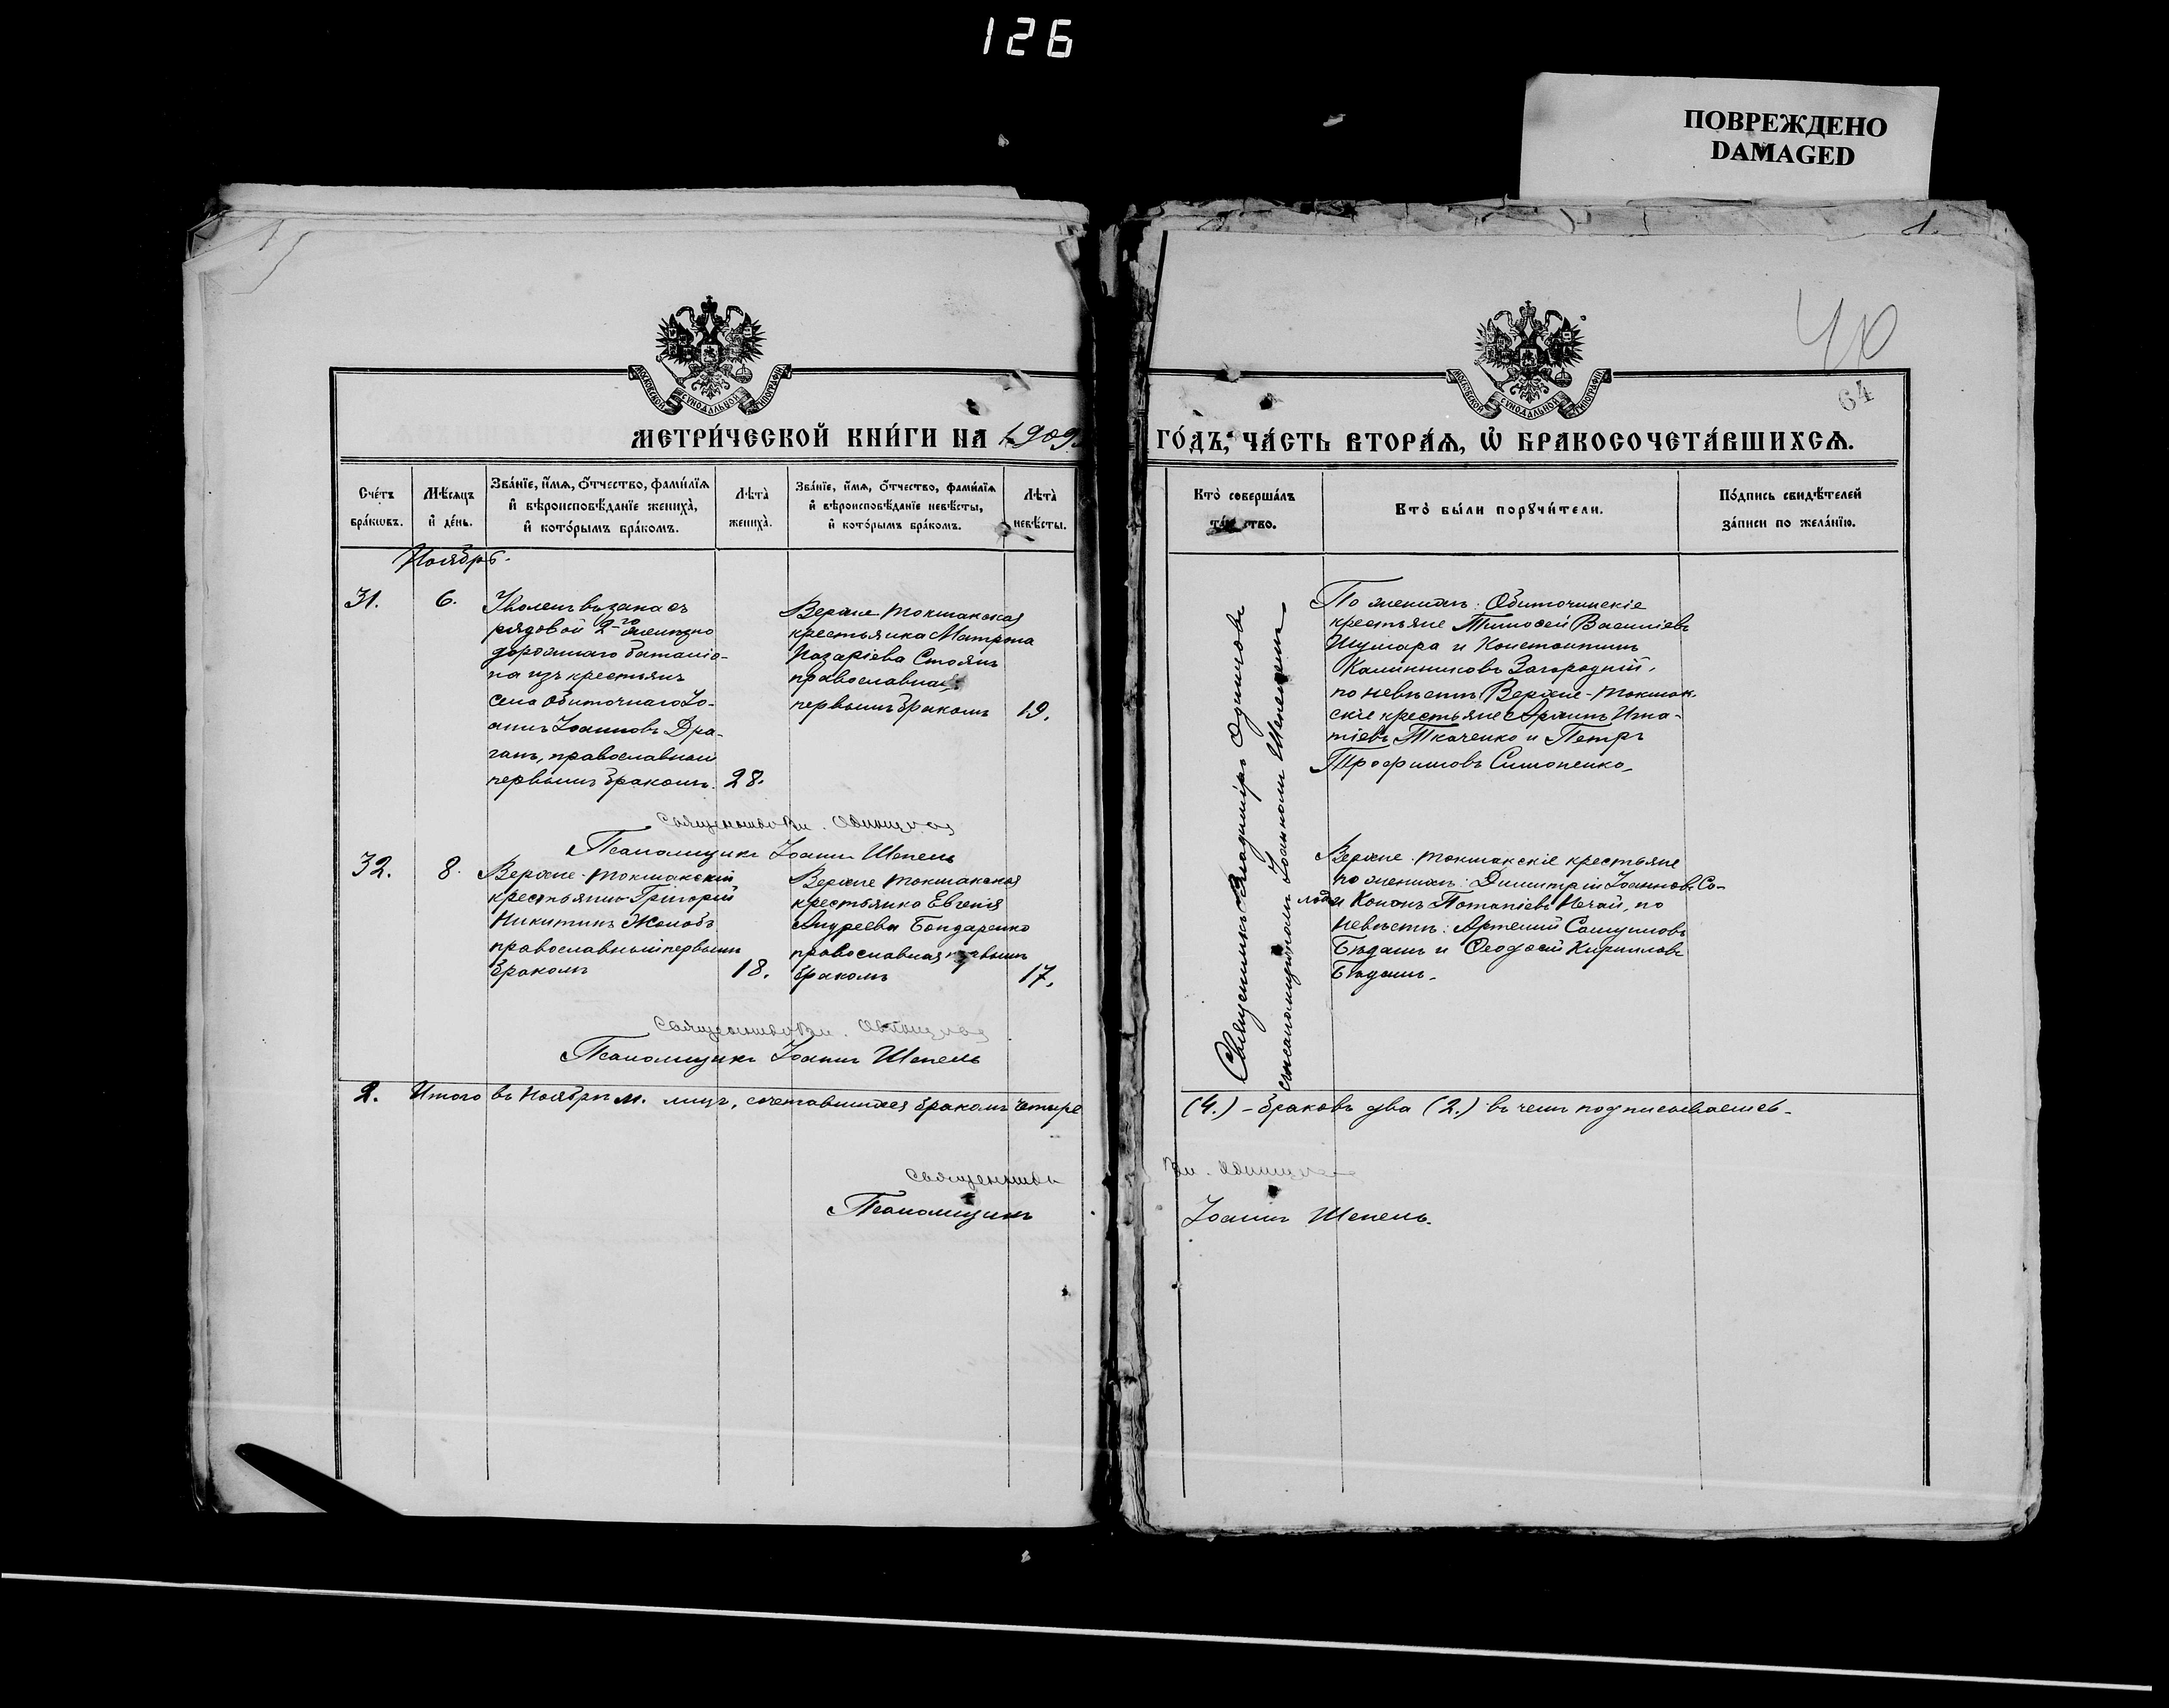 126
ПОВРЕЖДЕНО
DAMAGED
1.
40
64
МОСКОВСКОЙ СУНОДАЛЬНОЙ ТИПОГРАФІИ
МОСКОВСКОЙ СУНОДАЛЬНОЙ ТИПОГРАФІИ
МЕТРИ́ЧЕСКОЙ КНИ́ГИ НА 1909 ГО́ДЪ, ЧА́СТЬ ВТОРА́Я, Ѡ҆ БРАКОСОЧЕТА́ВШИХСѦ.
Сче́тъ бра́кѡвъ.
Мѣ́сяцъ и҆ де́нь.
Зва́нїе, и҆́мѧ, ѻ҆́тчество, фами́лїѧ
и҆ вѣроисповѣ́данїе жениха̀,
и҆ кото́рымъ бра́комъ.
Лѣта̀ жениха̀.
Зва́нїе, и҆́мѧ, ѻ҆́тчество, фами́лїѧ
и҆ вѣроисповѣ́данїе невѣ́сты,
и҆ кото́рымъ бра́комъ.
Лѣта̀ невѣ́сты.
Кто̀ соверша́лъ
та ство.
Кто̀ бы́ли порꙋчи́тели.
По́дпись свидѣ́телей
за́писи по жела́нїю.
Ноябрь.
31.
6.
Уволен въ запасъ
рядовой 2-го желѣзно
дорожнаго баталіо-
на изъ крестьянъ
села Обиточнаго Іо-
аннъ Іоанновъ Дра-
ганъ, православный
первымъ бракомъ.
28.
Верхне-Токмакская
крестьянка Матрона
Назаріева Стоянъ
православная
первымъ бракомъ
19.
Священникъ Владиміръ Одинцовъ
съ псаломщикомъ Іоанномъ Шепелемъ
По женихѣ: Обиточинскіе
крестьяне Тимоѳей Василіевъ
Шумара и Константинъ
Калинниковъ Загородній,
по невѣстѣ: Верхне-Токмак-
скіе крестьяне Архипъ Игна-
тіевъ Ткаченко и Петръ
Трофимовъ Симоненко.
Священникъ Вл. Одинцовъ
Псаломщикъ Іоаннъ Шепель
32.
8.
Верхне-Токмакскій
крестьянинъ Григорій
Никитинъ Жолобъ
православный первымъ
бракомъ
18.
Верхне Токмакская
крестьянка Евгенія
Андреева Бондаренко
православная первымъ
бракомъ
17.
Верхне-Токмакскіе крестьяне
по женихѣ: Димитрій Іоанновъ Со-
лодъ и Кононъ Потапіевъ Нечай, по
невѣстѣ: Артемій Самуиловъ
Бѣдашъ и Ѳеодосій Кирилловъ
Бѣдашъ.
Священникъ Вл. Одинцовъ
Псаломщикъ Іоаннъ Шепель
2. Итого въ Ноябрѣ м. лицъ, сочетавшихся бракомъ четыре (4.) - браковъ два (2.) въ чемъ подписываемся.
Священникъ Вл. Одинцовъ
Псаломщикъ Іоаннъ Шепель.